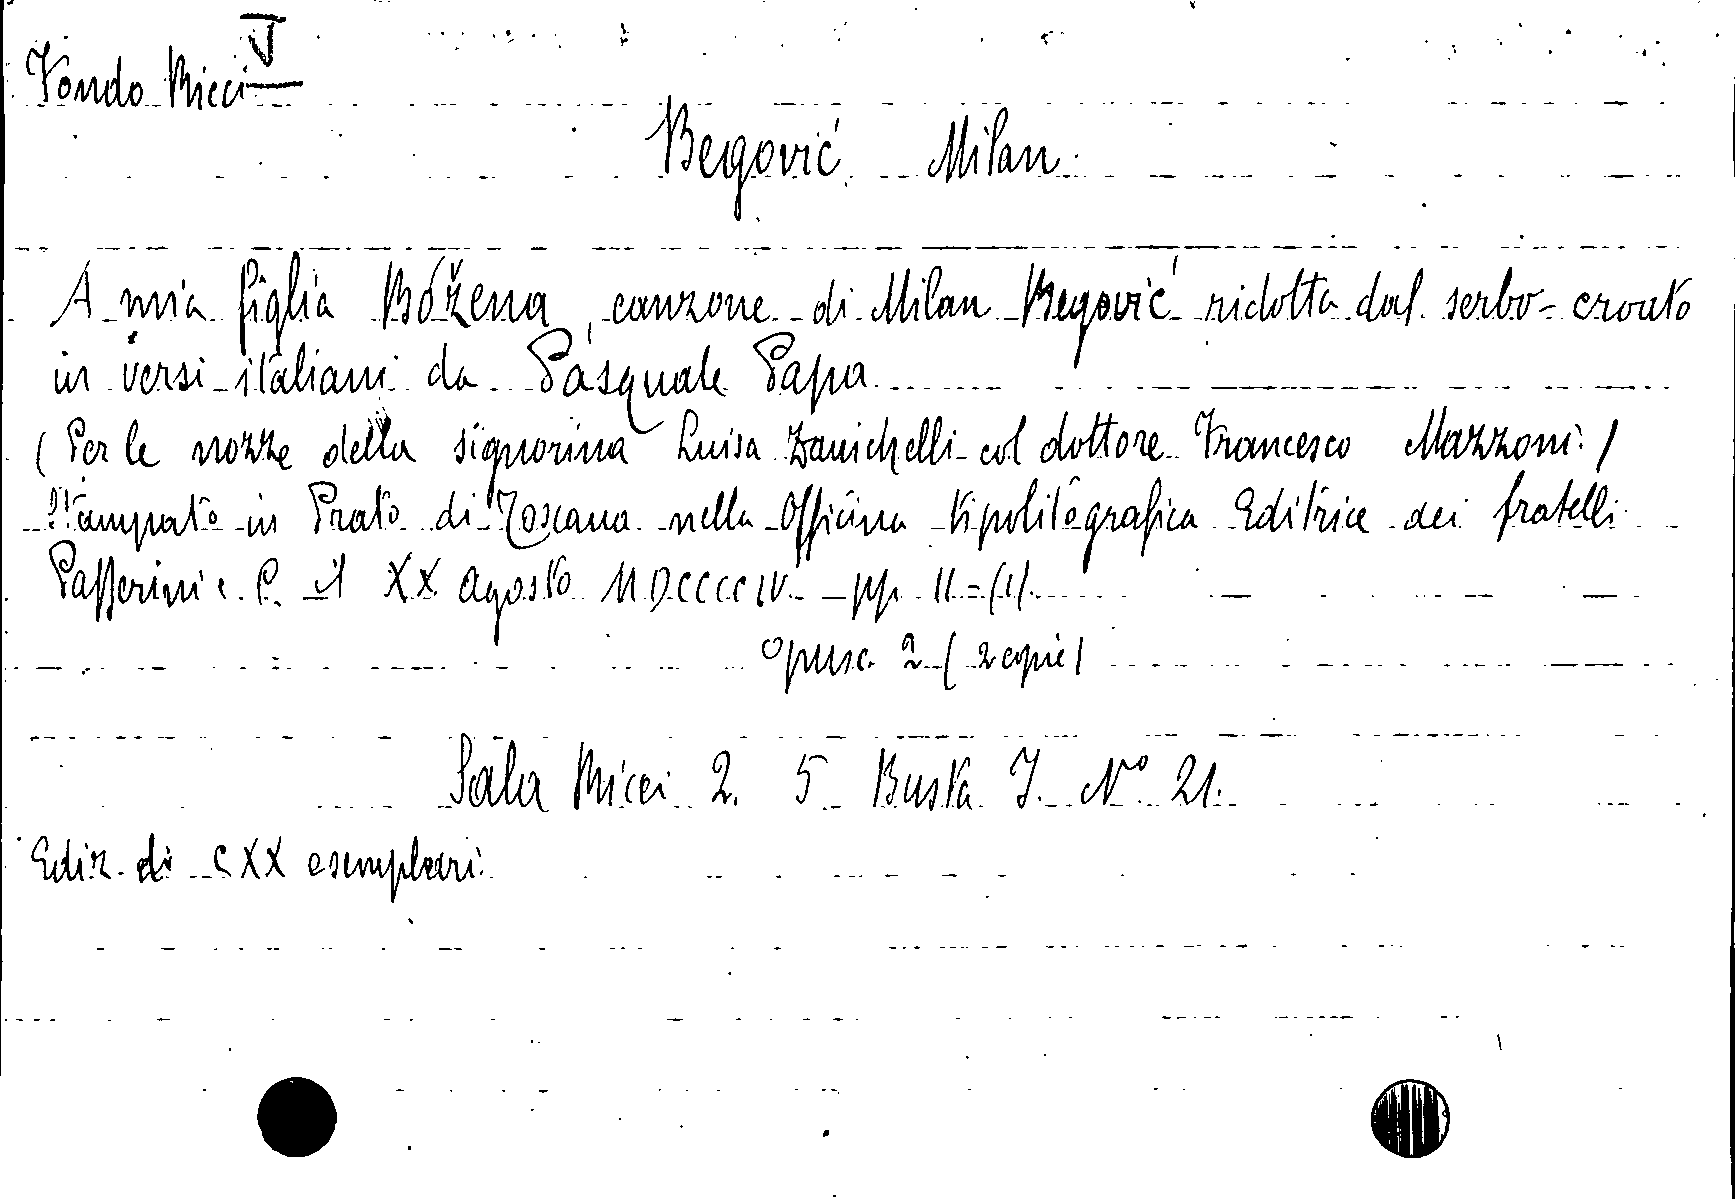 Fondo Ricci I
Begović Milan
A mia figlia Bóžena, canzone di Milan Begović ridotta dal serbo-croato
in versi italiani da Pasquale Papa
(Per le nozze della signorina Luisa Zanichelli col dottore Francesco Mazzoni)
Stampato in Prato di Toscana nella Officina tipolitografica Editrice dei fratelli
Passerini e C. il XX agosto MDCCCCIV pp. 11-(1).
Opusc. 2 (2 copie)
Sala Ricci 2. 5 Busta I. N° 21.
Ediz. di CXX esemplari.